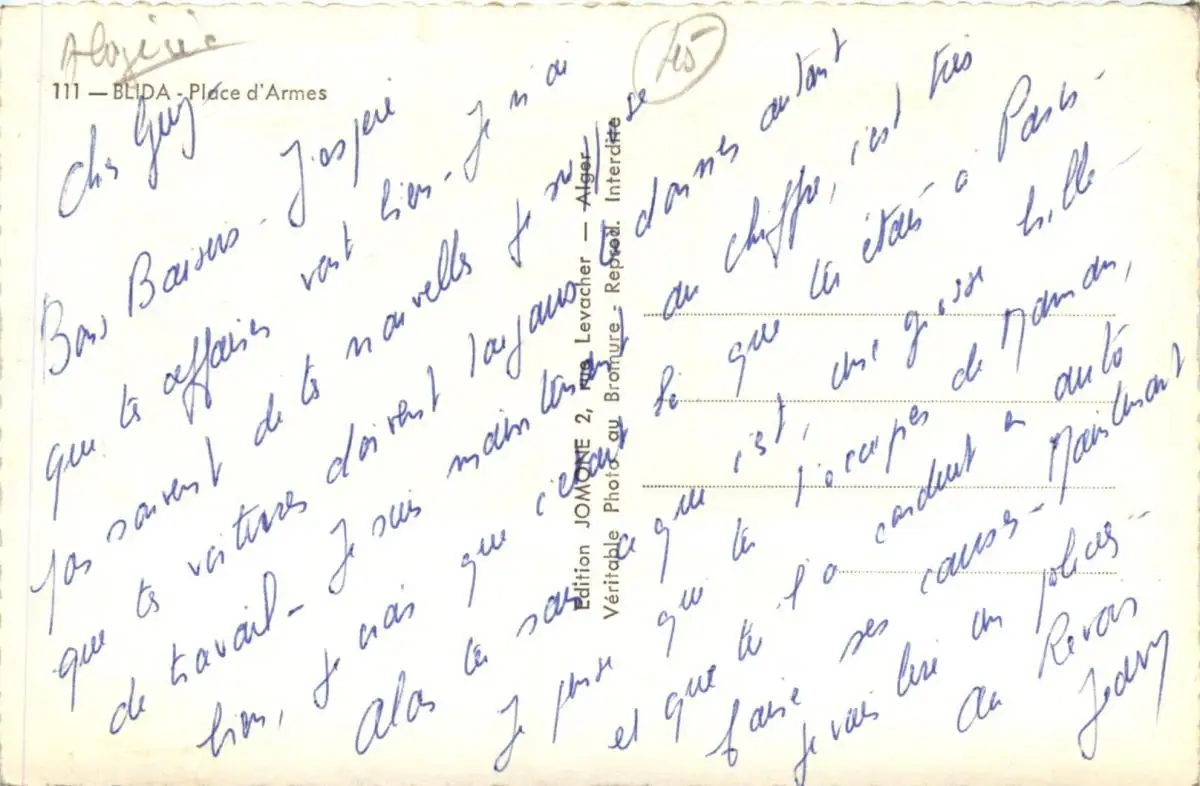 Algérie
45
111 — BLIDA - Place d'Armes
Cher Guy
Bons Baisers - J'espère
que tes affaires vont bien - Je n'ai
pas souvent de tes nouvelles je suppose
que tes voitures doivent toujours te donner autant
de travail - Je suis maintenant au chiffre, c'est très
bien, je crois que c'était là que tu étais à Paris -
Alors tu sais ce que c'est, une grosse bille -
Je pense que tu t'occupes de Maman,
et que tu l'a conduit en auto
faire ses courses - Maintenant
je vais lire un policier -
Au Revoir
Edition JOMONE 2, rue Levacher — Alger
Véritable Photo au Bromure - Reprod. Interdite